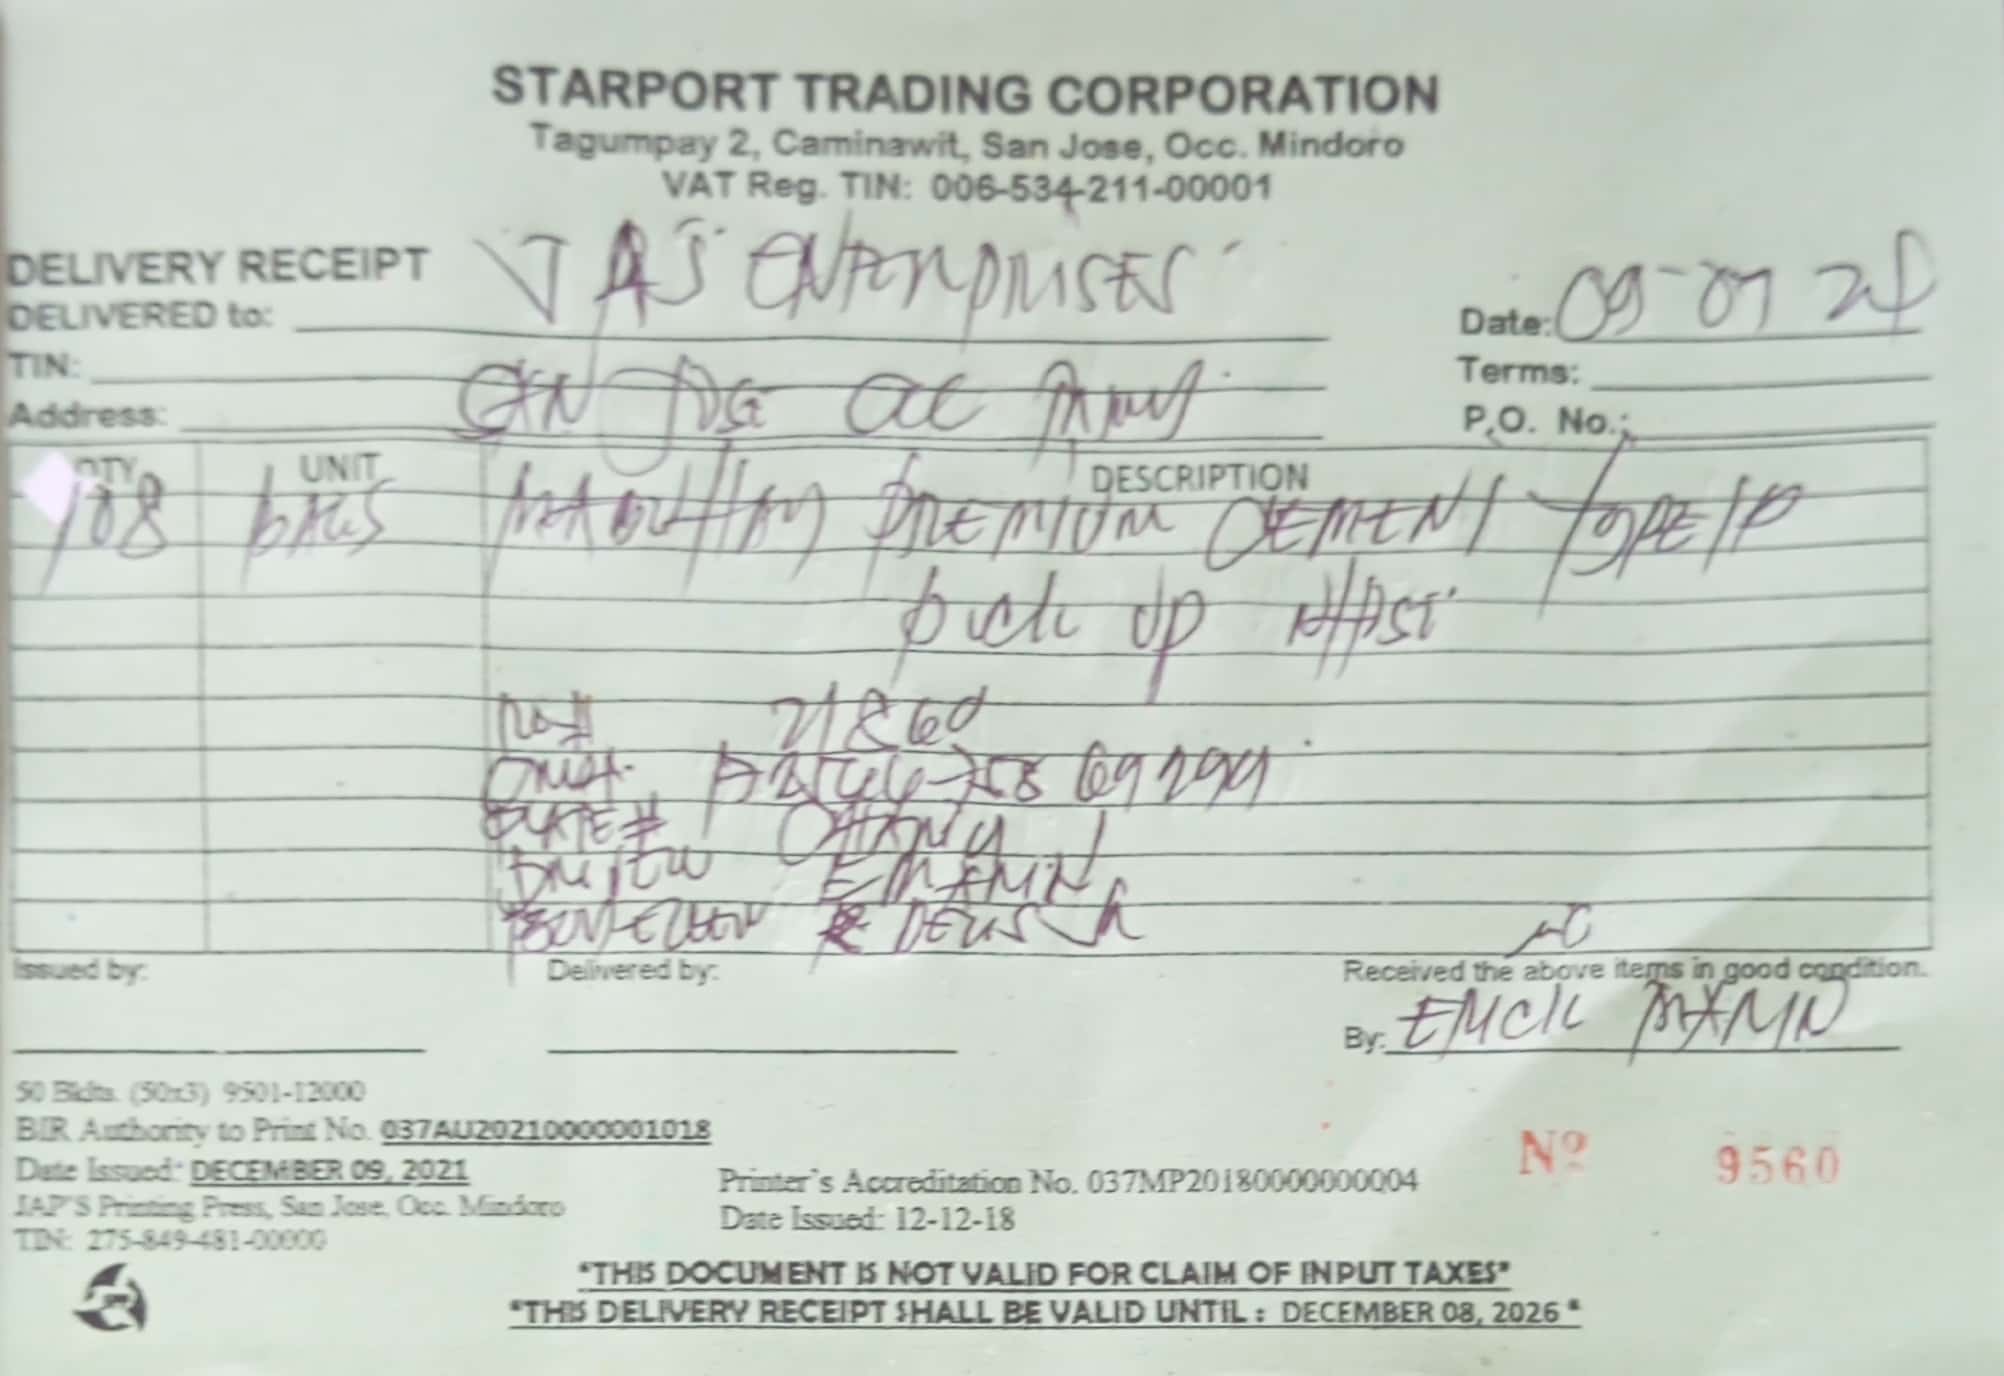 STARPORT TRADING CORPORATION
Tagumpay 2, Caminawit, San Jose, Occ. Mindoro
VAT Reg. TIN: 006-534-211-00001
DELIVERY RECEIPT
DELIVERED to: JAS ENTERPRISES
Date: 09-07
TIN:
Terms:
Address: SAN JOSE OCC
P.O. No.:
QTY UNIT DESCRIPTION
108 BAGS PREMIUM CEMENT TYPE 1P
PICK UP
21860
PLATE#
DRIVER
Issued by: Delivered by: Received the above items in good condition.
By:
50 Bklts. (50x3) 9501-12000
BIR Authority to Print No. 037AU20210000001018
Date Issued: DECEMBER 09, 2021
JAP'S Printing Press, San Jose, Occ. Mindoro
TIN: 275-849-481-00000
Printer's Accreditation No. 037MP20180000000004
Date Issued: 12-12-18
Nº 9560
*THIS DOCUMENT IS NOT VALID FOR CLAIM OF INPUT TAXES*
*THIS DELIVERY RECEIPT SHALL BE VALID UNTIL : DECEMBER 08, 2026 *